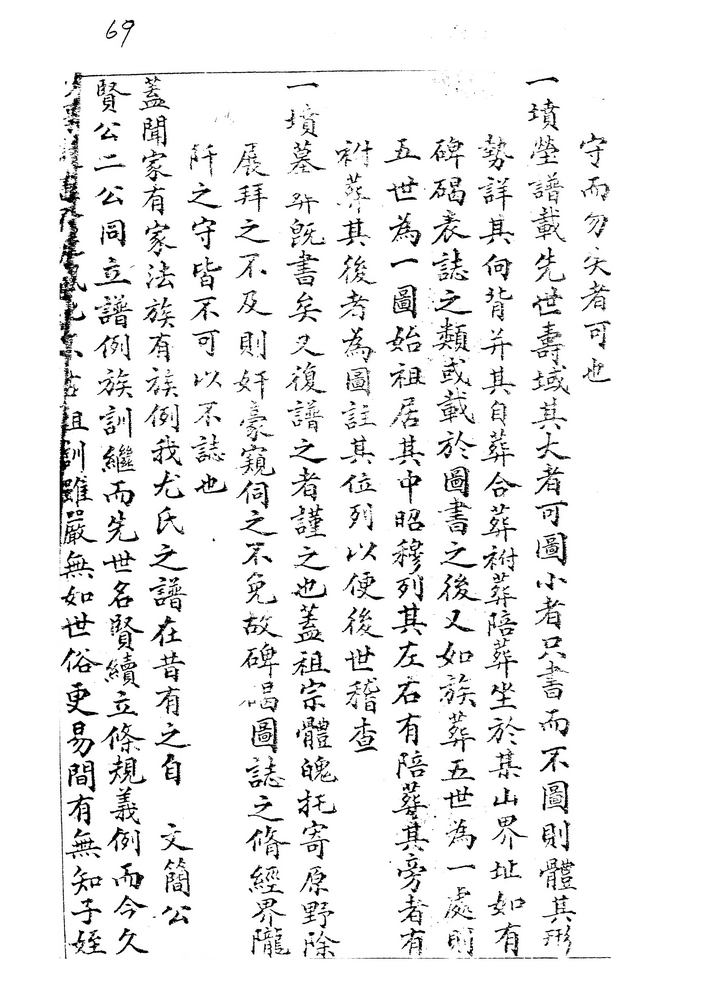 69
守而勿失者可也
一墳塋譜載先世壽域其大者可圖小者只書而不圖則體其形
勢詳其向背并其自葬合葬祔葬陪葬坐於某山界址如有
碑碣表誌之類或載於圖書之後又如族葬五世為一處則
五世為一圖始祖居其中昭穆列其左右有陪葬其旁者有
祔葬其後者為圖註其位列以便後世稽查
一墳墓所既書矣又復譜之者謹之也蓋祖宗體魄托寄原野除
展拜之不及則奸豪窺伺之不免故碑碣圖誌之脩經界隴
阡之守皆不可以不誌也
蓋聞家有家法族有族例我尤氏之譜在昔有之自 文簡公
賢公二公同立譜例族訓繼而先世名賢續立條規義例而今久
祖訓雖嚴無如世俗更易間有無知子姪